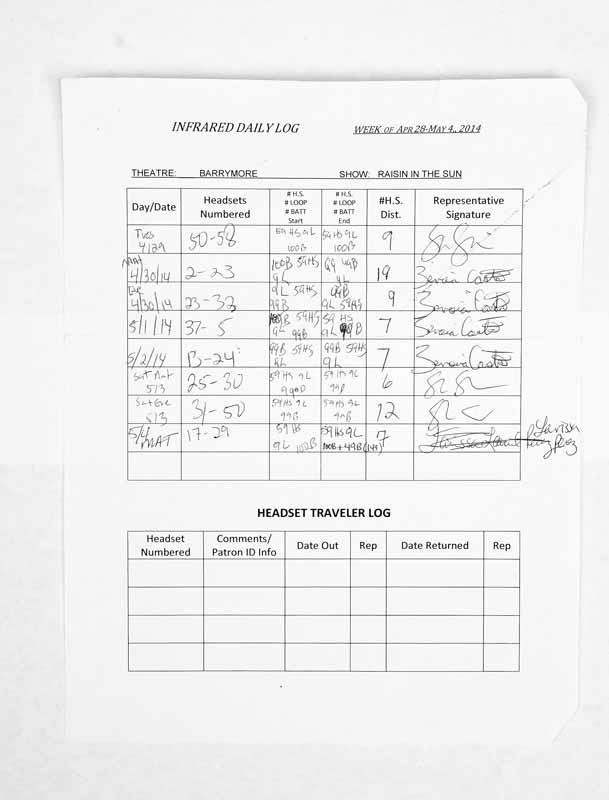 INFRARED DAILY LOG WEEK OF APR 28-MAY 4, 2014
THEATRE: BARRYMORE SHOW: RAISIN IN THE SUN
Day/Date Headsets Numbered # H.S. # LOOP # BATT Start # H.S. # LOOP # BATT End #H.S. Dist. Representative Signature
Tues 4/29 50-58 59 HS 9L 100B 59 HS 9L 100B 9
MAT 4/30/14 2-23 100B 59HS 9L 99B 9L 19
Eve 4/30/14 23-33 9L 59HS 99B 99B 9L 59HS 9
5/1/14 37-5 59HS 9L 99B 59 HS 9L 99B 7
5/2/14 13-24 99B 59HS 9L 99B 59HS 9L 7
Sat Mat 5/3 25-30 59HS 9L 99B 59HS 9L 99B 6
Sat Eve 5/3 31-50 59HS 9L 99B 59HS 9L 99B 12
5/4 MAT 17-29 59 HS 9L 100B 59HS 9L 100B + 49B (149) 7 Larissa Perez
HEADSET TRAVELER LOG
Headset Numbered Comments/ Patron ID Info Date Out Rep Date Returned Rep